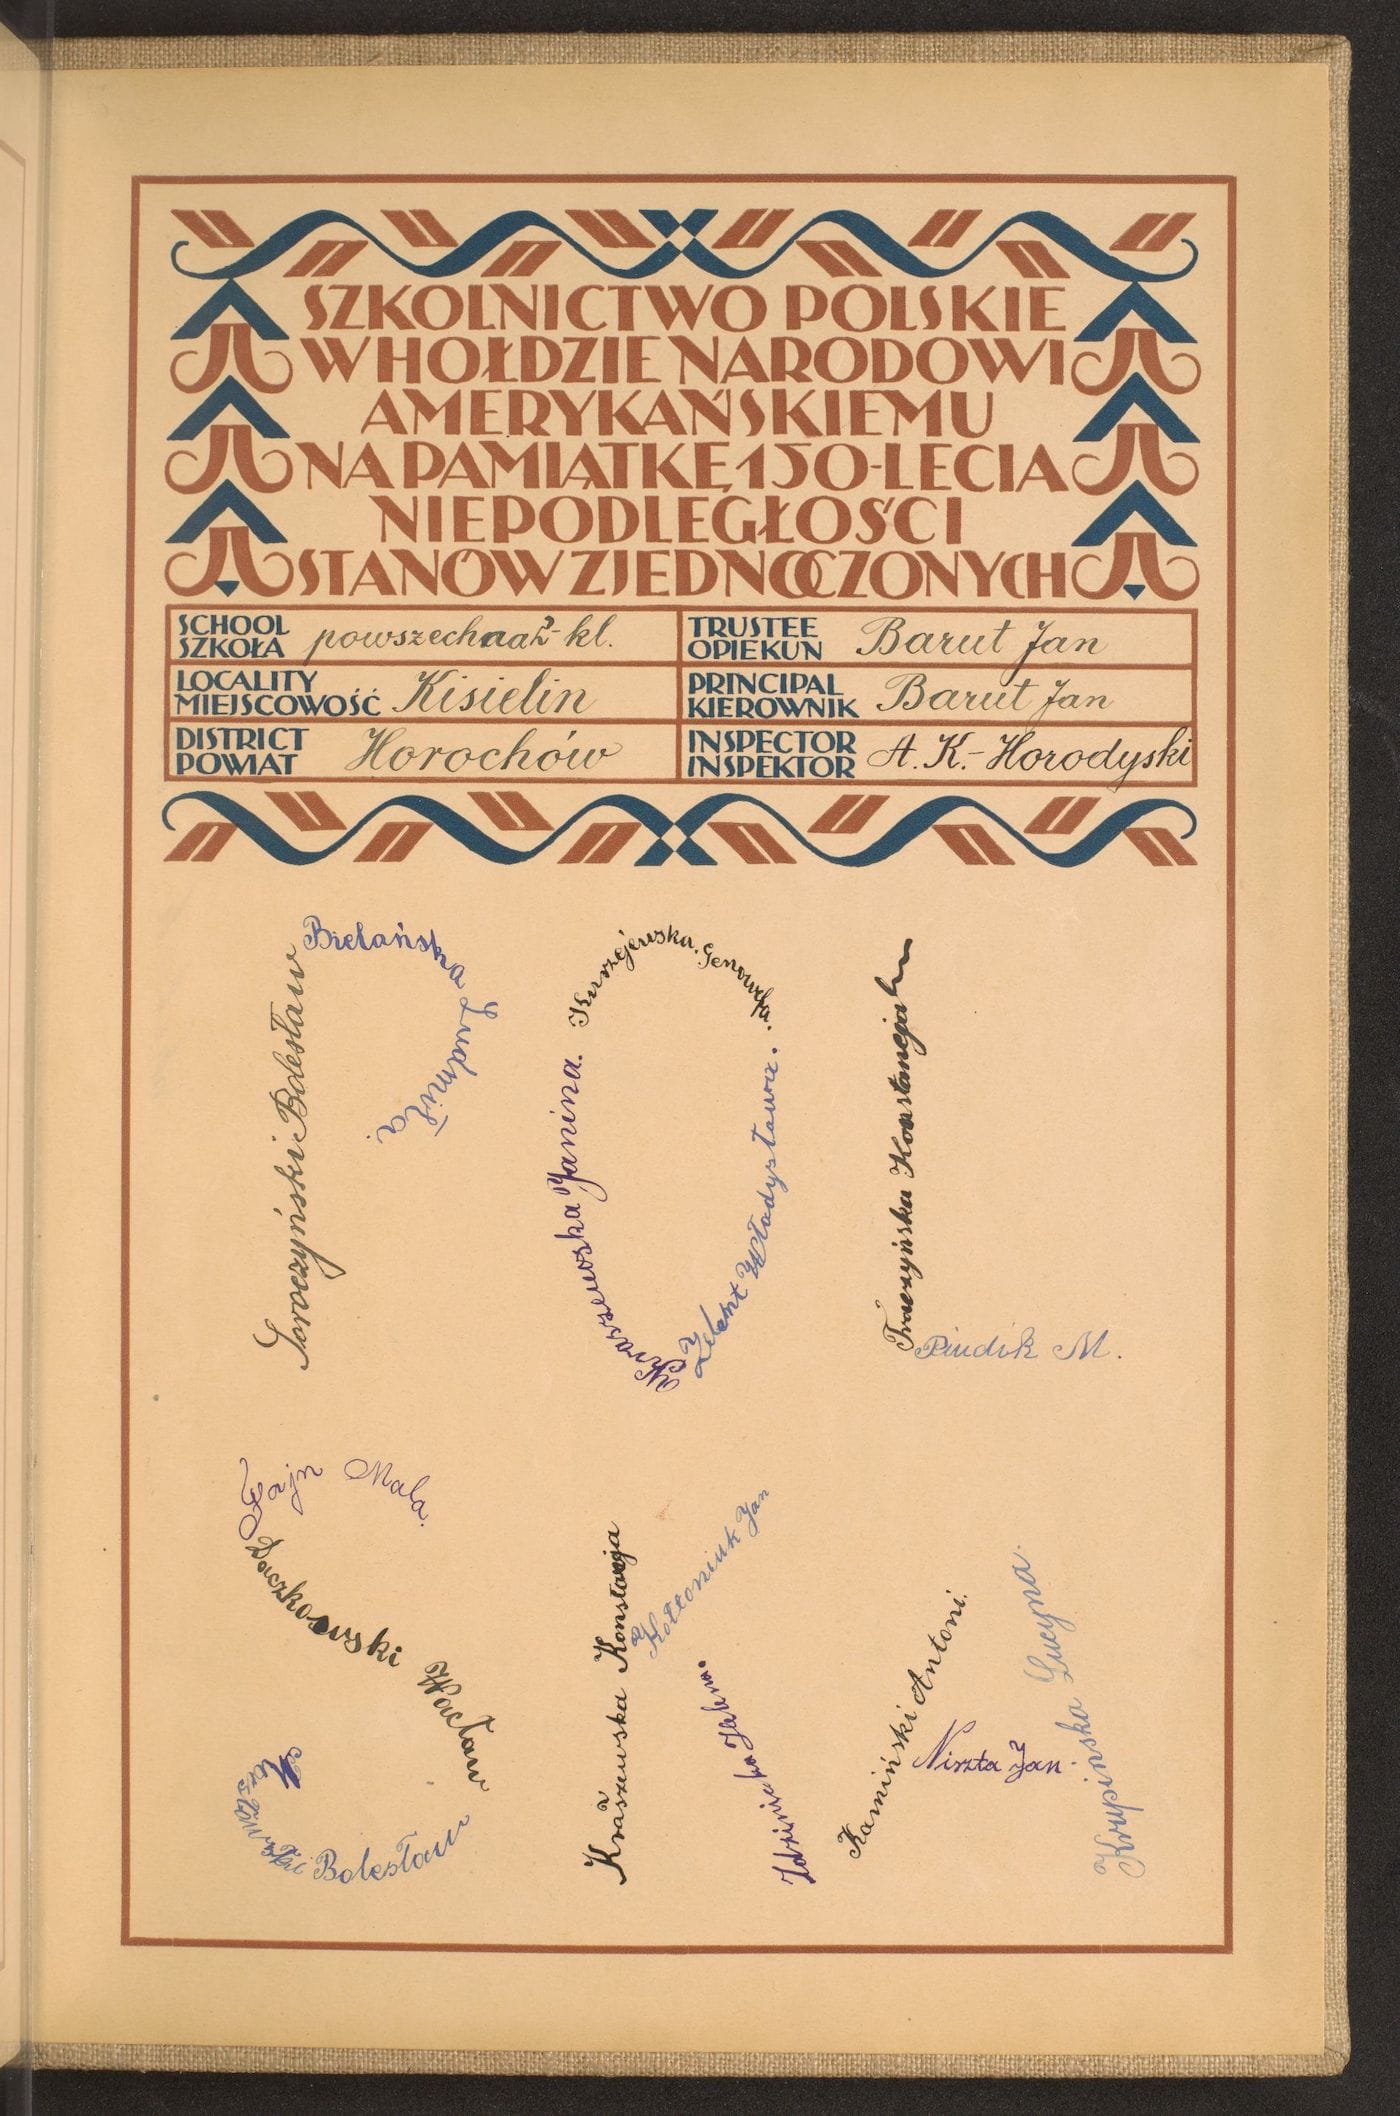 SZKOLNICTWO POLSKIE
W HOŁDZIE NARODOWI
AMERYKAŃSKIEMU
NA PAMIĄTKĘ 150-LECIA
NIEPODLEGŁOŚCI
STANÓW ZJEDNOCZONYCH
SCHOOL
SZKOŁA
powszechna 2-kl.
TRUSTEE
OPIEKUN
Barut Jan
LOCALITY
MIEJSCOWOŚĆ
Kisielin
PRINCIPAL
KIEROWNIK
Barut Jan
DISTRICT
POWIAT
Horochów
INSPECTOR
INSPEKTOR
A. K.-Horodyski
Soroczyński Bolesław
Bielańska Ludmiła.
Kraszewska Janina.
Kurzejewska Genowefa.
Zelent Władysława.
Traczyńska Konstancja
Pindik M.
Fajn Mala.
Daczkowski Wacław
Kozłowski Bolesław
Kraszewska Konstancja
Kotłoniuk Jan
Kamiński Antoni.
Niszta Jan.
Krupińska Lucyna.